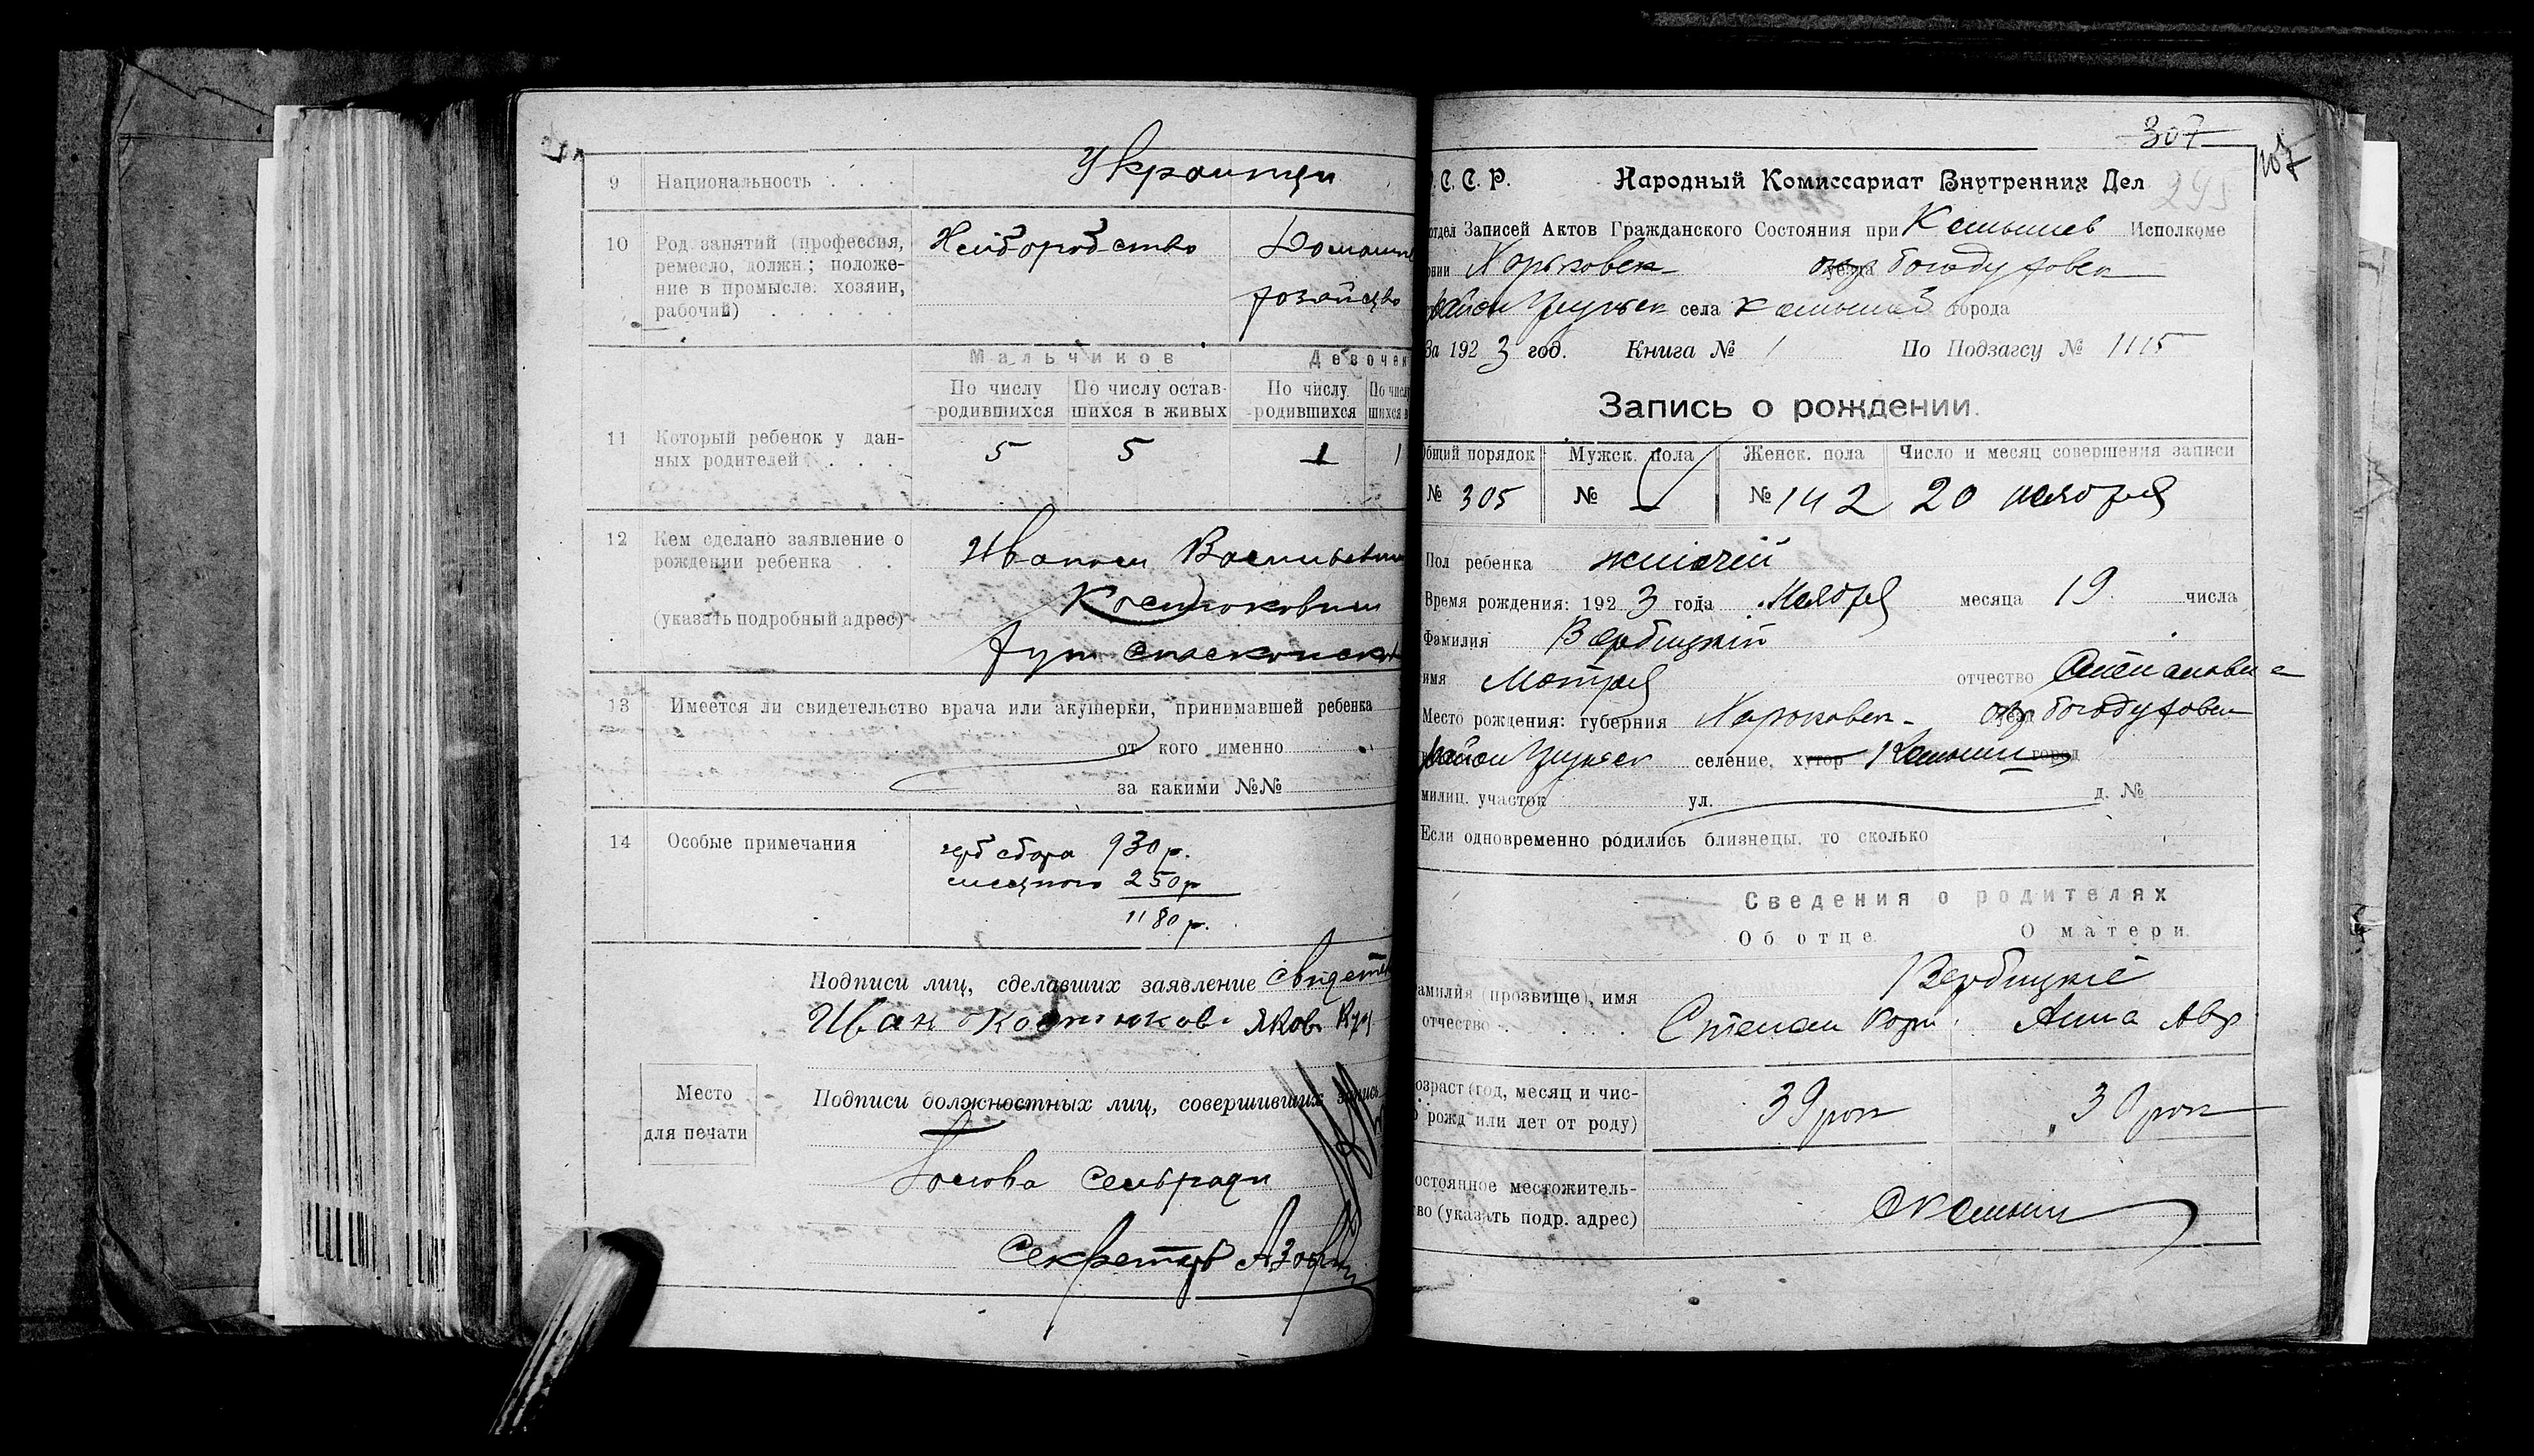 9 Национальность . . . Украинци
10 Род занятий (профессия, Хлiборобство Домашне
ремесло, должн.; положе-
ние в промысле: хозяин, хозяйство
рабочий) . . . . .
Мальчиков Девочек
По числу По числу остав- По числу По числу
родившихся шихся в живых родившихся шихся в
11 Который ребенок у дан- 5 5 1 1
ных родителей . . .
12 Кем сделано заявление о Иваном
рождении ребенка . .
(указать подробный адрес)
хут
13 Имеется ли свидетельство врача или акушерки, принимавшей ребенка
от кого именно
за какими №№
14 Особые примечания герб сбора 930 р.
250 р
1180 р.
Подписи лиц, сделавших заявление
Иван Яков
Место Подписи должностных лиц, совершивших запись
для печати
Голова Сельради
Секретарь
307
107
295
С. С. Р. Народный Комиссариат Внутренних Дел
отдел Записей Актов Гражданского Состояния при Камышев Исполкоме
Харьковск уезда Богодуховск
район села города
За 1923 год. Книга № 1 По Подзагсу № 1115
Запись о рождении.
Общий порядок Мужск. пола Женск. пола Число и месяц совершения записи
№ 305 № — № 142 20 ноября
Пол ребенка жiночiй
Время рождения: 1923 года Ноября месяца 19 числа
Фамилия Вербицкiй
имя Мотря отчество Степановна
Место рождения: губерния Харьковск уезд Богодуховск
район селение, хутор Камыши город
милиц. участок ул. д. №
Если одновременно родились близнецы, то сколько
Сведения о родителях
Об отце. О матери.
Вербицкiе
фамилия (прозвище), имя
отчество . . . . Степан Анна Авр
возраст (год, месяц и чис- 39 рок 30 рок
рожд или лет от роду)
постоянное местожитель-
ство (указать подр. адрес) с Камыши